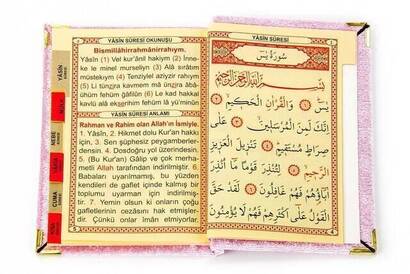 YÂSÎN SÛRESİ OKUNUŞU
Bismillâhirrahmânirrahîym.
Yâsîn (1) Vel kur'ânil hakiym (2) İnne-
ke le minel murseliyn (3) Alâ sırâtim
müstekıym (4) Tenziylel aziyzir rahiym
(5) Li tünzira kavmem mâ ünzira âbâ-
ühüm fehüm ğâfilûn (6) Le kad hakkal
kavlü alâ ekserihim fehüm lâ yü'minûn
YÂSÎN SÛRESİ ANLAMI
Rahman ve Rahim olan Allah'ın İsmiyle.
1. Yâsîn, 2. Hikmet dolu Kur'an hakkı
için, 3. Sen şüphesiz peygamberler-
densin. 4. Dosdoğru yol üzerindesin.
5. (Bu Kur'an) Gâlip ve çok merha-
metli Allah tarafından indirilmiştir. 6.
Babaları uyarılmamış, bu yüzden
kendileri de gaflet içinde kalmış bir
toplumu uyarman için indirilmiş-
tir. 7. Yemin olsun ki onların çoğu
gafletlerinin cezasını hak etmişler-
dir. Çünkü onlar îman etmiyorlar.
YÂSÎN
NEBE
CUMA
YÂSÎN SÛRESİ
سُورَةُ يٰسٓ
بِسْمِ اللّٰهِ الرَّحْمٰنِ الرَّحِيمِ
يٰسٓ ﴿١﴾ وَالْقُرْاٰنِ الْحَكِيمِ ﴿٢﴾
اِنَّكَ لَمِنَ الْمُرْسَلِينَ ﴿٣﴾ عَلٰى
صِرَاطٍ مُسْتَقِيمٍ ﴿٤﴾ تَنْزِيلَ الْعَزِيزِ
الرَّحِيمِ ﴿٥﴾ لِتُنْذِرَ قَوْمًا مَٓا اُنْذِرَ
اٰبَٓاؤُهُمْ فَهُمْ غَافِلُونَ ﴿٦﴾ لَقَدْ حَقَّ
الْقَوْلُ عَلٰٓى اَكْثَرِهِمْ فَهُمْ لَا يُؤْمِنُونَ